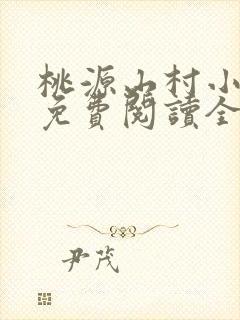 桃源山村小
免費閱讀全
尹茂